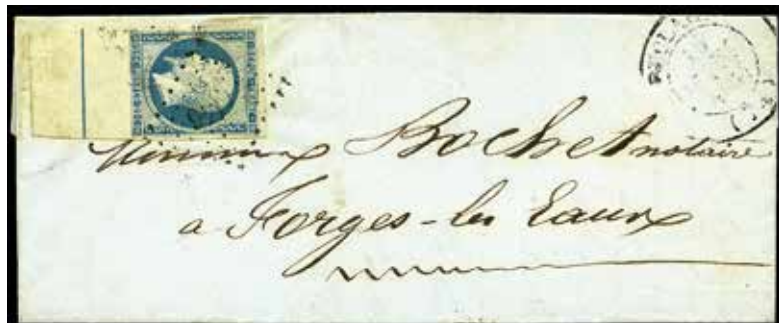 Monsieur Bochet notaire
a Forges-les Eaux